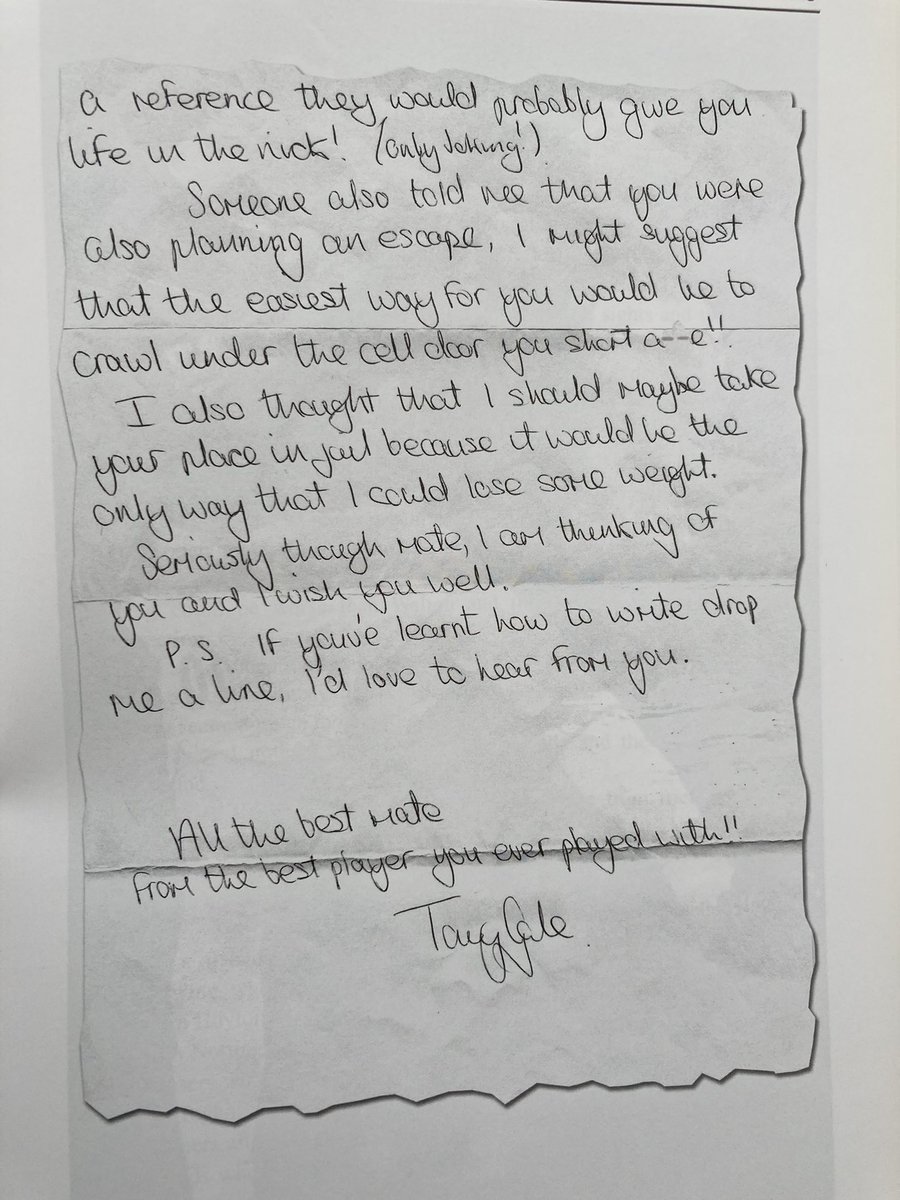 a reference they would probably give you
life in the nick! (only joking!)
Someone also told me that you were
also planning an escape, I might suggest
that the easiest way for you would be to
crawl under the cell door you short a--e!!
I also thought that I should maybe take
your place in jail because it would be the
only way that I could lose some weight.
Seriously though mate, I am thinking of
you and I wish you well.
P.S. If you've learnt how to write drop
me a line, I'd love to hear from you.
All the best mate
from the best player you ever played with!!
Tony Gale